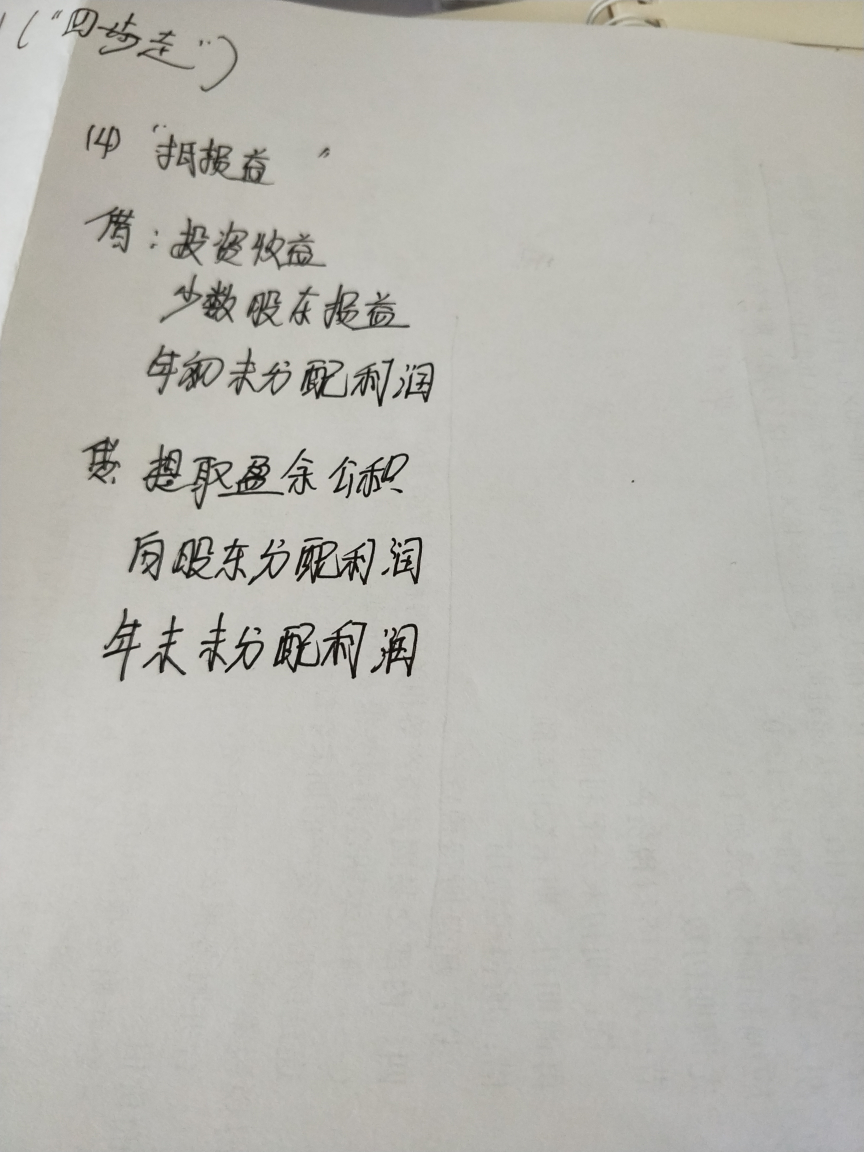 (“四步走”)
(4) “抵损益”
借：投资收益
少数股东损益
年初未分配利润
贷：提取盈余公积
向股东分配利润
年末未分配利润